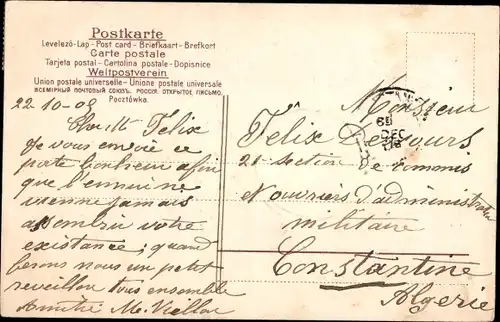 Postkarte
Levelező-Lap - Post card - Briefkaart - Brefkort
Carte postale
Tarjeta postal - Cartolina postale - Dopisnice
Weltpostverein.
Union postale universelle - Unione postale universale
ВСЕМІРНЫЙ ПОЧТОВЫЙ СОЮЗЪ. РОССІЯ. ОТКРЫТОЕ ПИСЬМО.
Pocztówka.
22-10-09
Félix
Je vous envoie ce
porte bonheur afin
que l'ennui ne
vienne jamais
assombrir votre
existance; quand
ferons nous un petit
reveillon tous ensemble
Amitié M.
Monsieur
Félix
21e section de commis
d'administration
militaire
Constantine
Algerie
DEC